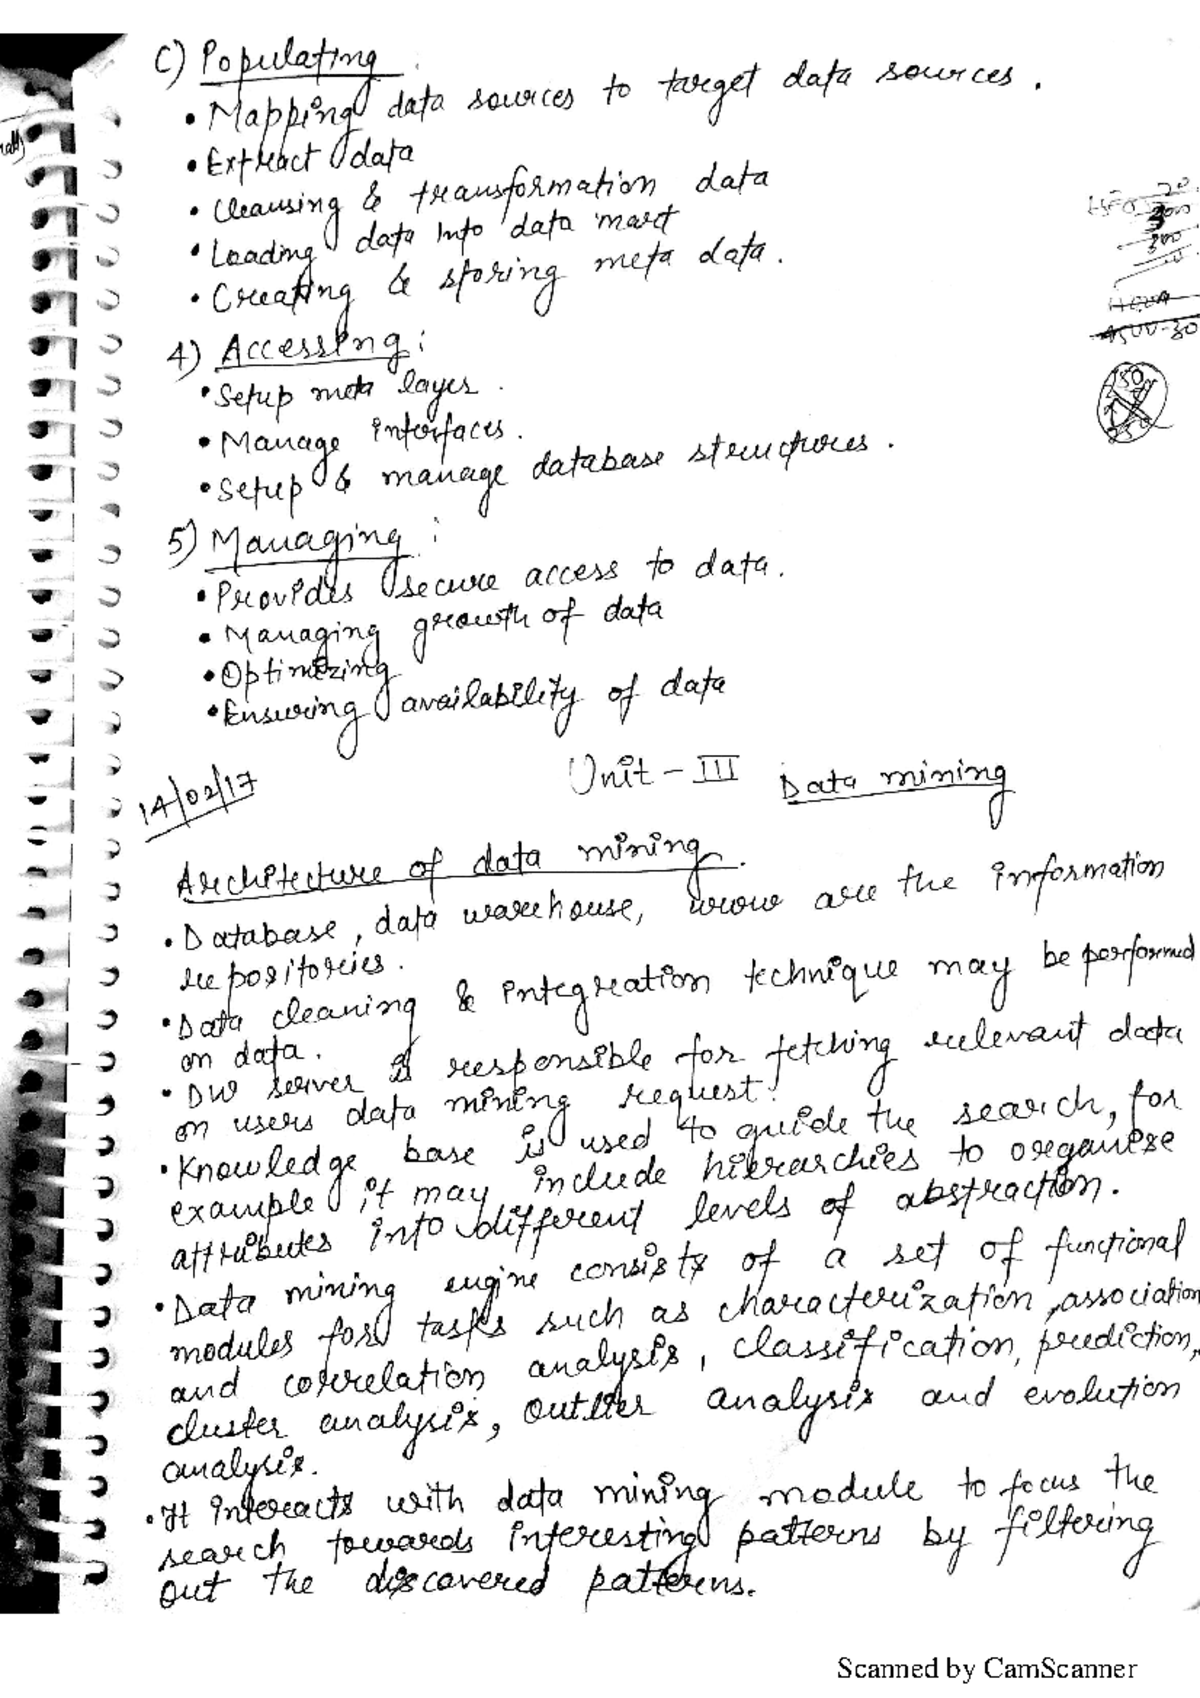 C) Populating
• Mapping data sources to target data sources.
• Extract data
• Cleansing & transformation data
• Loading data into data mart
• Creating & storing meta data.
4) Accessing:
• Setup meta layer.
• Manage interfaces.
• Setup & manage database structures.
5) Managing:
• Provides secure access to data.
• Managing growth of data
• Optimizing
• Ensuring availability of data
Unit - III Data mining
14/02/17
Architecture of data mining.
• Database, data warehouse, www are the information
repositories.
• Data cleaning & integration technique may be performed
on data.
• DW server is responsible for fetching relevant data
on users data mining request.
• Knowledge base is used to guide the search, for
example it may include hierarchies to organise
attributes into different levels of abstraction.
• Data mining engine consists of a set of functional
modules for tasks such as characterization, association
and correlation analysis, classification, prediction,
cluster analysis, outlier analysis and evolution
analysis.
• It interacts with data mining module to focus the
search towards interesting patterns by filtering
out the discovered patterns.
Scanned by CamScanner